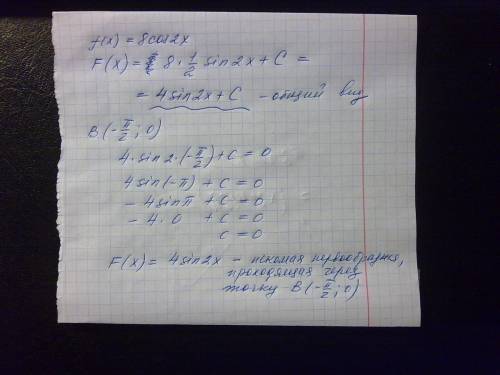 f(x) = 8cos2x
F(x) = 8 · 1/2 sin2x + C =
= 4sin2x + C - общий вид
B(-π/2; 0)
4·sin2·(-π/2) + C = 0
4sin(-π) + C = 0
- 4sinπ + C = 0
- 4·0 + C = 0
C = 0
F(x) = 4sin2x - искомая первообразная,
проходящая через
точку B(-π/2; 0)